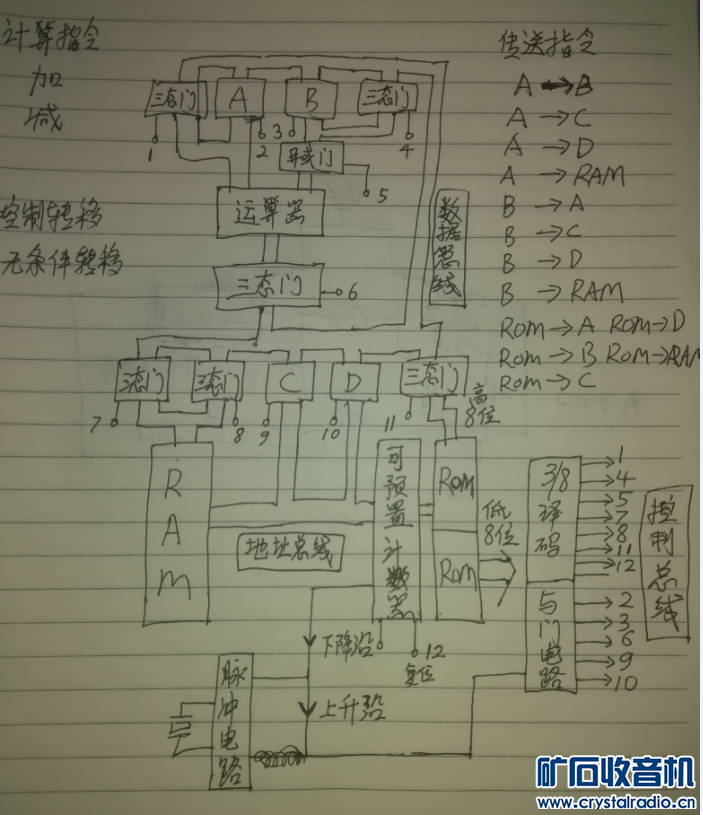 计算指令
加
减
控制转移
无条件转移
传送指令
A ↔ B
A → C
A → D
A → RAM
B → A
B → C
B → D
B → RAM
Rom → A Rom → D
Rom → B Rom → RAM
Rom → C
三态门
A
B
三态门
1
2
3
4
异或门
5
运算器
三态门
6
数据总线
三态门
三态门
C
D
三态门
7
8
9
10
11
高8位
RAm
可预置计数器
Rom
Rom
低8位
地址总线
3/8译码
与门电路
1
4
5
7
8
11
12
2
3
6
9
10
控制总线
下降沿
12
复位
上升沿
脉冲电路
矿石收音机
www.crystalradio.cn